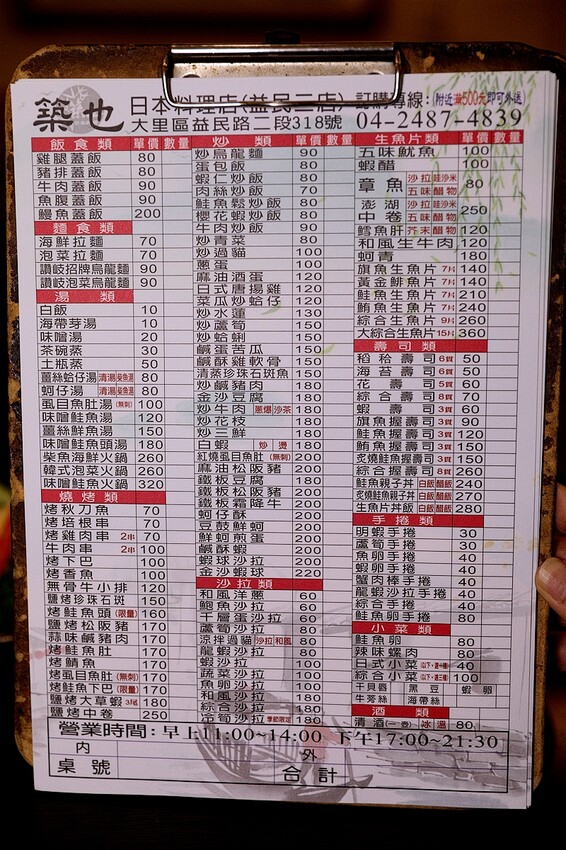 築也 日本料理店(益民二店) 訂購專線: (附近滿500元即可外送)
大里區益民路二段318號 04-2487-4839
飯食類 單價 數量
雞腿蓋飯 80
豬排蓋飯 80
牛肉蓋飯 90
魚腹蓋飯 90
鰻魚蓋飯 200
麵食類
海鮮拉麵 70
泡菜拉麵 70
讚岐招牌烏龍麵 90
讚岐泡菜烏龍麵 90
湯類
白飯 10
海帶芽湯 10
味噌湯 20
茶碗蒸 30
土瓶蒸 50
薑絲蛤仔湯 80
蚵仔湯 80
虱目魚肚湯 (無刺) 100
味噌鮭魚湯 120
薑絲鮮魚湯 150
味噌鮭魚頭湯 180
柴魚海鮮火鍋 260
韓式泡菜火鍋 260
味噌鮭魚火鍋 320
燒烤類
烤秋刀魚 70
烤培根串 70
烤雞肉串 2串 70
牛肉串 2串 100
烤下巴 100
烤香魚 100
無骨牛小排 120
鹽烤珍珠石斑 150
烤鮭魚頭 (限量) 160
鹽烤松阪豬 170
蒜味鹹豬肉 170
烤鮭魚肚 170
烤鯖魚 170
烤虱目魚肚 (無刺) 170
烤鮭魚下巴 (限量) 170
鹽烤大草蝦 3尾 180
鹽烤中卷 250
炒類 單價 數量
炒烏龍麵 90
蛋包飯 80
蝦仁炒飯 80
肉絲炒飯 70
鮭魚鬆炒飯 80
櫻花蝦炒飯 80
牛肉炒飯 90
炒青菜 80
炒過貓 100
蔥蛋 100
麻油酒蛋 120
日式唐揚雞 120
菜瓜炒蛤仔 120
炒水蓮 130
炒蘆筍 150
炒蛤蜊 150
鹹蛋苦瓜 150
鹹酥雞軟骨 150
清蒸珍珠石斑魚 150
炒鹹豬肉 180
金沙豆腐 180
炒牛肉 蔥爆 沙茶 180
炒花枝 180
炒三鮮 180
白蝦 炒 燙 180
紅燒虱目魚肚 (無刺) 200
麻油松阪豬 200
鐵板豆腐 180
鐵板松阪豬 200
鐵板霜降牛 200
蚵仔酥 200
豆鼓鮮蚵 200
鮮蚵煎蛋 200
鹹酥蝦 200
蝦球沙拉 200
金沙蝦球 220
沙拉類
和風洋蔥 60
鮑魚沙拉 60
千層蛋沙拉 60
蘆筍沙拉 80
涼拌過貓 沙拉 和風 80
龍蝦沙拉 80
蝦沙拉 100
蔬菜沙拉 100
魚卵沙拉 100
和風沙拉 100
綜合沙拉 180
冷筍沙拉 季節限定 180
生魚片類 單價 數量
五味魷魚 100
蝦醋 100
章魚 沙拉 哇沙米 五味 醋物 80
澎湖中卷 沙拉 哇沙米 五味 醋物 250
鱈魚肝 芥末 醋物 120
和風生牛肉 120
蚵青 180
旗魚生魚片 7片 140
黃金鯡魚片 7片 140
鮭魚生魚片 7片 210
鮪魚生魚片 7片 240
綜合生魚片 9片 260
大綜合生魚片 15片 360
壽司類
稻禾壽司 6貫 50
海苔壽司 50
花壽司 5貫 60
綜合壽司 8貫 70
蝦壽司 3貫 60
旗魚握壽司 3貫 90
鮭魚握壽司 3貫 120
鮪魚握壽司 3貫 150
炙燒鮭魚握壽司 3貫 150
綜合握壽司 8貫 260
鮭魚親子丼 白飯 醋飯 240
炙燒鮭魚親子丼 白飯 醋飯 270
生魚片丼飯 白飯 醋飯 280
手捲類
明蝦手捲 30
蘆筍手捲 30
魚卵手捲 40
蟹肉棒手捲 40
龍蝦沙拉手捲 40
綜合手捲 40
鮭魚卵手捲 80
小菜類
鮭魚卵 80
辣味螺肉 80
日式小菜 40
綜合小菜 100
干貝唇 黑豆 蝦卵
牛蒡絲 海帶絲
酒類
清酒(一壺) 冰 溫 80
營業時間: 早上11:00~14:00 下午17:00~21:30
內 外
桌號 合計